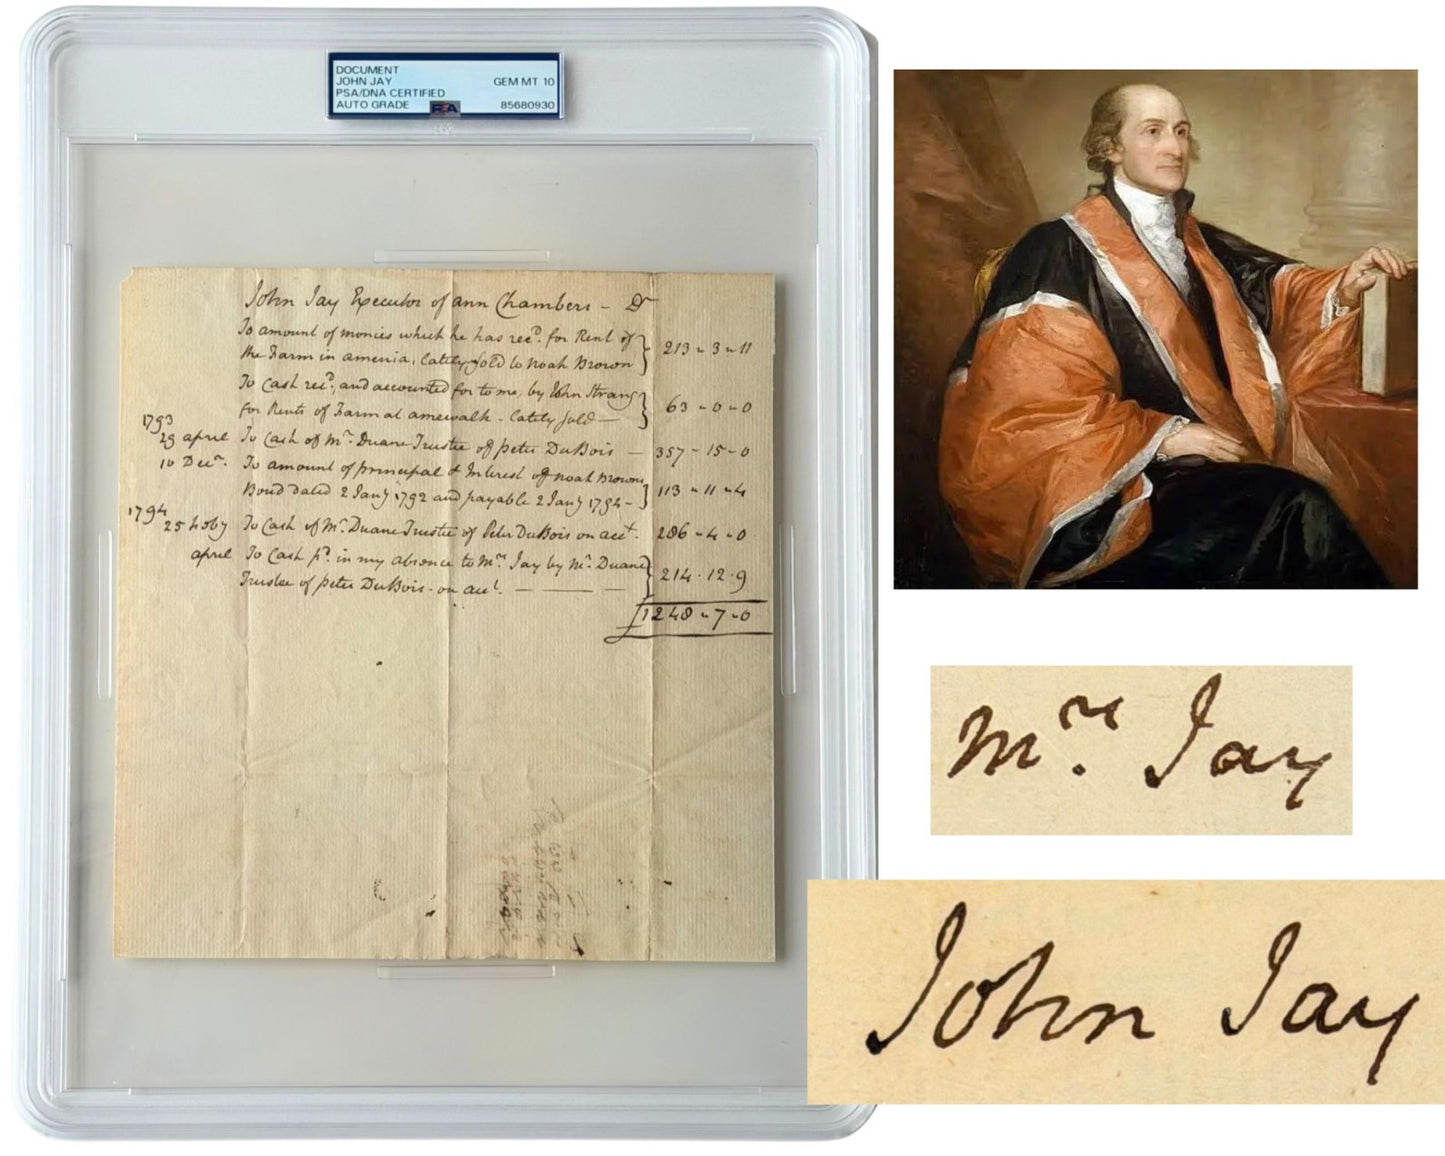 DOCUMENT
JOHN JAY
PSA/DNA CERTIFIED
AUTO GRADE
GEM MT 10
PSA
85680930
John Jay Executor of ann Chambers – Dr
To amount of monies which he has recd. for Rent of
the Farm in amenia, lately sold to Noah Brown } 213 – 3 – 11
To Cash recd, and accounted for to me, by John Strang
for Rents of Farm at amewalk – lately sold — } 63 – 0 – 0
1793
29 april To Cash of Mr. Duane Trustee of peter DuBois — 357 – 15 – 0
10 Decr. To amount of principal & Interest of Noah Browns
Bond dated 2 Jany 1792 and payable 2 Jany 1794 – } 113 – 11 – 4
1794
25 To Cash of Mr. Duane Trustee of Peter DuBois on acct. 286 – 4 – 0
april To Cash pd. in my absence to Mrs Jay by Mr. Duane
Trustee of peter DuBois – on acct. — — — } 214 . 12 . 9
1248 – 7 – 0
Mrs. Jay
John Jay